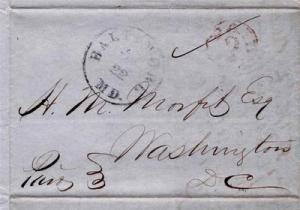 BALTIMORE
22
Md.
H. M. Morfit Esq
Washington
Paid 3
D C